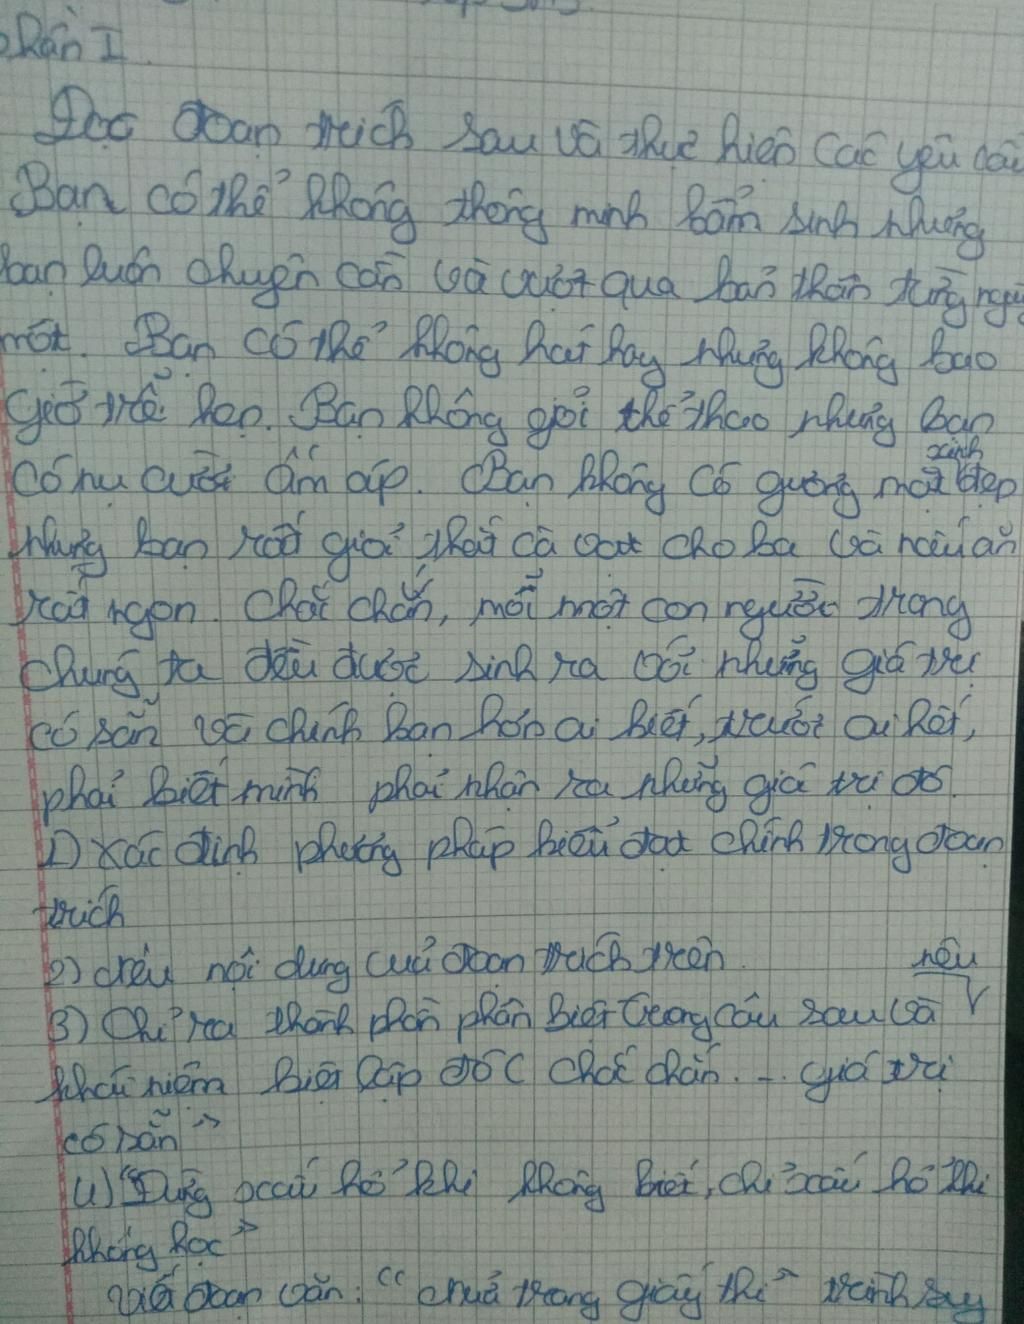 Phần I
Đọc đoạn trích sau và thực hiện các yêu cầu
Bạn có thể không thông minh bẩm sinh nhưng
bạn luôn chuyên cần và vượt qua bản thân từng ngày
một. Bạn có thể không hát hay nhưng không bao
giờ trễ hẹn. Bạn không giỏi thể thao nhưng bạn
có nụ cười ấm áp. Bạn không có gương mặt xinh đẹp
nhưng bạn rất giỏi thắt cà vạt cho ba và nấu ăn
rất ngon. Chắc chắn, mỗi một con người trong
chúng ta đều được sinh ra với những giá trị
có sẵn và chính bạn hơn ai biết, trước ai hết,
phải biết mình phải nhận ra những giá trị đó.
1) Xác định phương pháp biểu đạt chính trong đoạn
trích
2) nêu nội dung của đoạn trích trên
3) Chỉ ra thành phần phân biệt trong câu sau và nêu
khái niệm biệt lập đóc chắc chắn ... giá trị
có sẵn"
4) "Đừng xấu hổ khi không biết, chỉ xấu hổ khi
không học"
Viết đoạn văn: " chuẩ trang giấy thi" trình bày